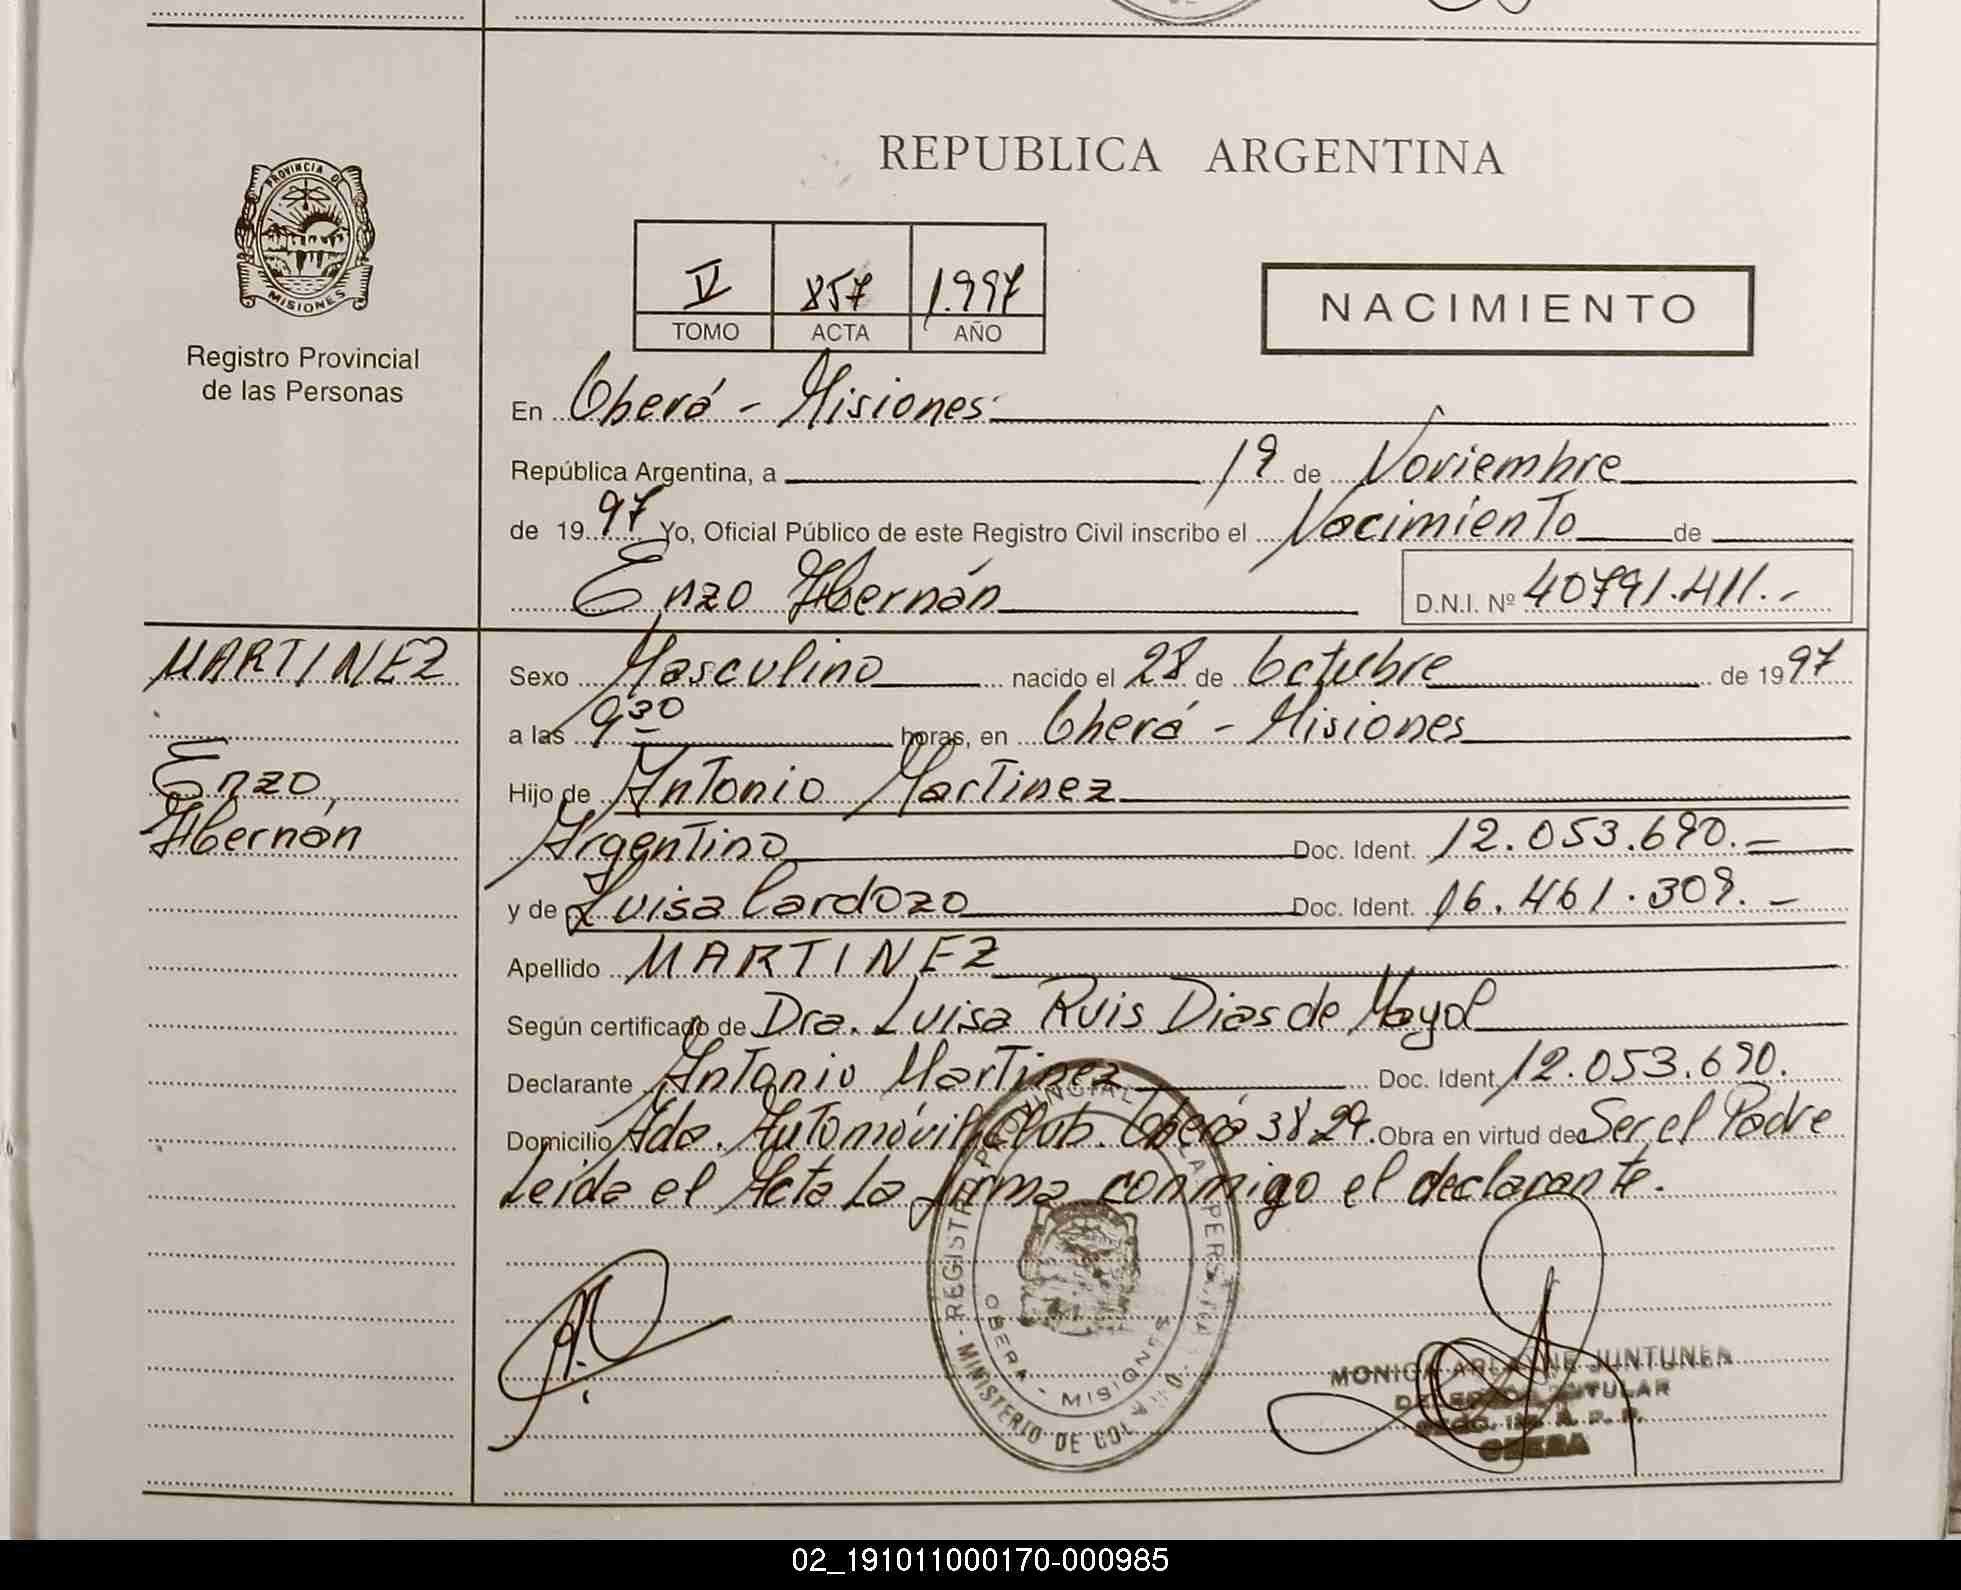 PROVINCIA DE
MISIONES
Registro Provincial
de las Personas
REPUBLICA ARGENTINA
V 857 1.997
TOMO ACTA AÑO
NACIMIENTO
En Oberá - Misiones
República Argentina, a 19 de Noviembre
de 1997 Yo, Oficial Público de este Registro Civil inscribo el Nacimiento de
Enzo Hernán D.N.I. Nº 40791.411.-
MARTINEZ
Enzo
Hernán
Sexo Masculino nacido el 28 de Octubre de 1997
a las 9 30 horas, en Oberá - Misiones
Hijo de Antonio Martinez
Argentino Doc. Ident. 12.053.690.-
y de Luisa Cardozo Doc. Ident. 16.461.309.-
Apellido MARTINEZ
Según certificado de Dra. Luisa Ruis Dias de Mayol
Declarante Antonio Martinez Doc. Ident. 12.053.690.
Domicilio Avda. Automóvil Club. Oberá 3829. Obra en virtud de Ser el Padre
Leída el Acta La firma conmigo el declarante.
OBERA - MISIONES
MINISTERIO DE
MONICA JUNTUNEN
02_191011000170-000985